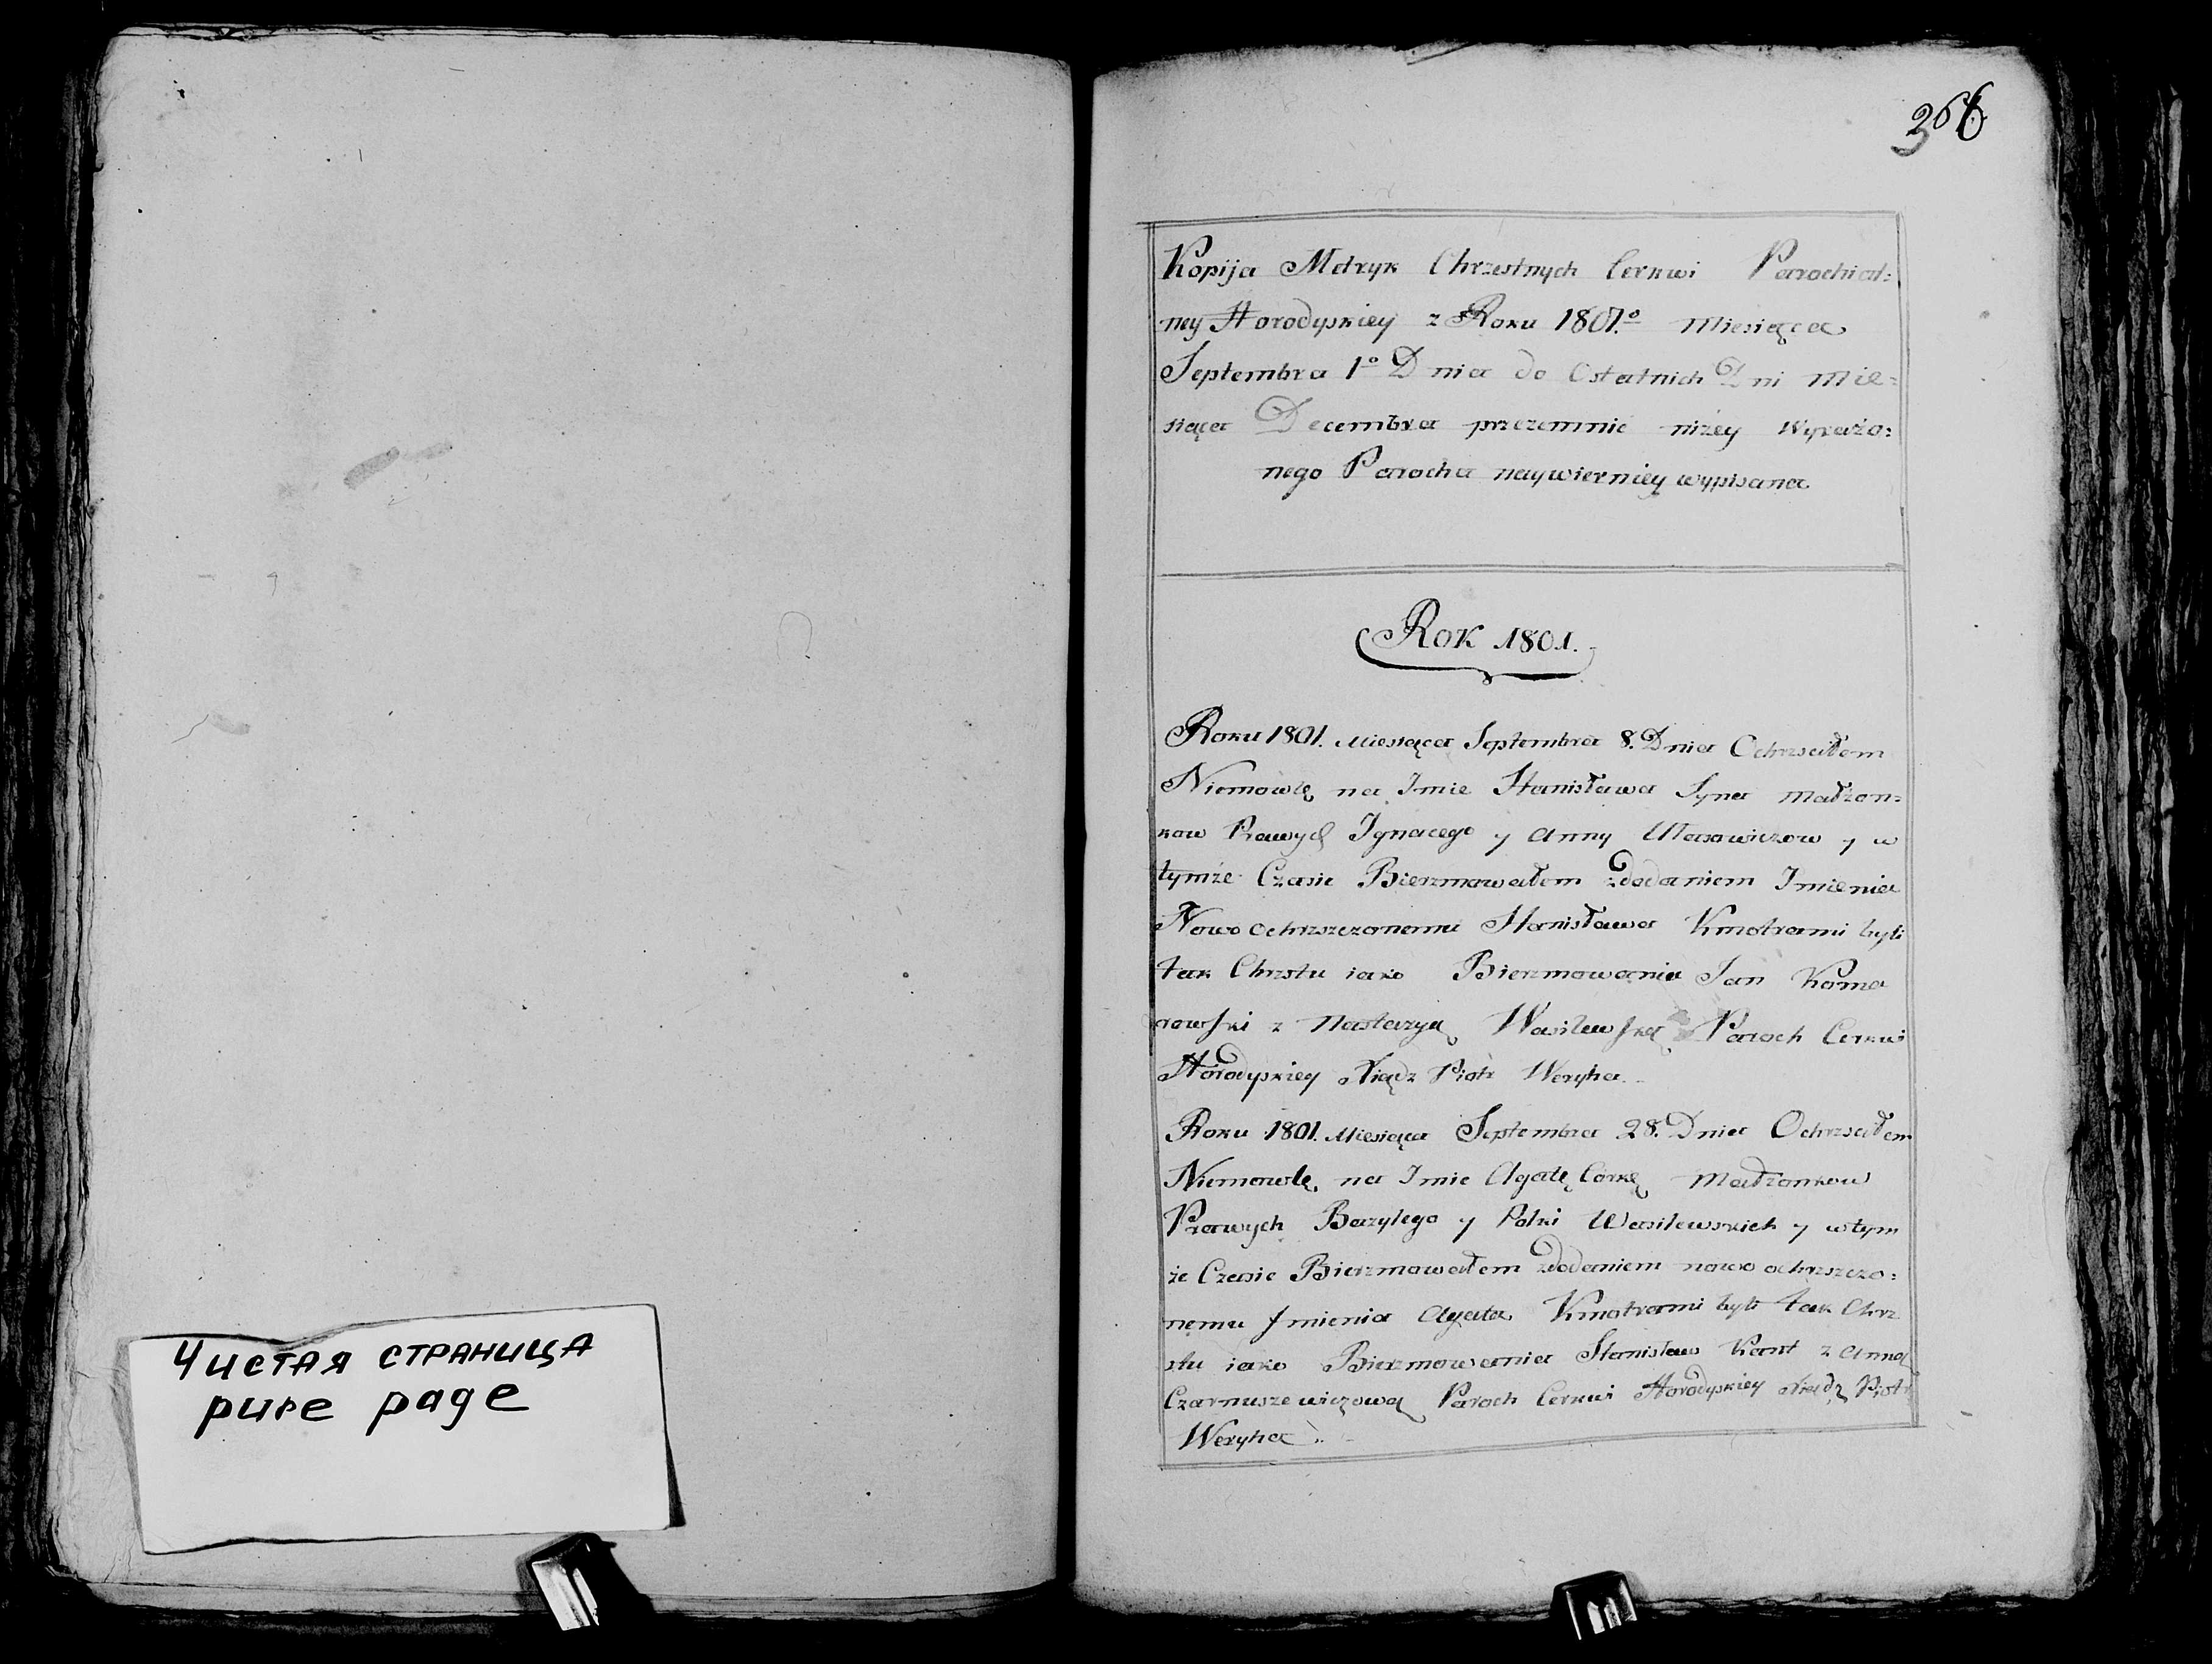 Чистая страница
pure page
366
Kopija Metryk Chrzestnych Cerkwi Parochial=
ney Horodyskiey z Roku 1801.º Miesiąca
Septembra 1º Dnia do Ostatnich Dni Mie=
siąca Decembra przezemnie niżey Wyrażo=
nego Parocha naywierniey wypisana
Rok 1801.
Roku 1801. Miesiąca Septembra 8. Dnia Ochrzciłem
Niemowlę na Imie Stanisława Syna małżon=
kow Prawych Ignacego y Anny y w
tymże Czasie Bierzmowałem zdodaniem Imienia
Nowo ochrzszczonemu Stanisława Kmotrami byli
tak Chrztu iako Bierzmowania Jan Koma
rowski z Nastazyą Wasilewską Paroch Cerkwi
Horodyskiey Xiądz Piotr Weryha
Roku 1801. Miesiąca Septembra 28. Dnia Ochrzciłem
Niemowlę na Imie Agatę Corkę Małżonkow
Prawych Bazylego y Polki Wasilewskich y wtym
że Czasie Bierzmowałem zdodaniem nowo ochrszczo=
nemu Imienia Agata Kmotrami byli tak Chrz
stu iako Bierzmowania Stanisław Kant z Anną
Czarnuszewiczową Paroch Cerkwi Horodyskiey Xiądz Piotr
Weryha